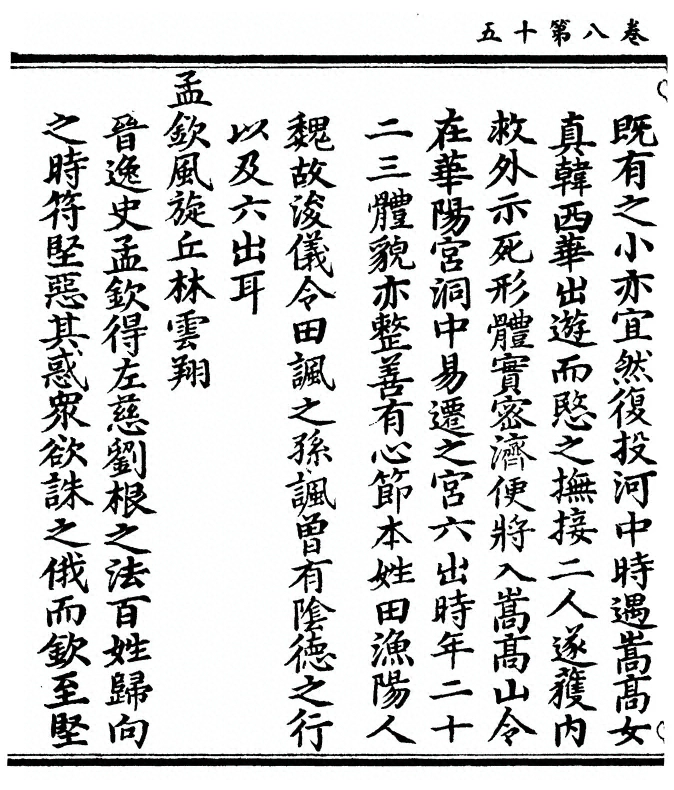 卷八第十五
既有之小亦宜然復投河中時遇嵩高女
真韓西華出遊而愍之撫接二人遂獲內
救外示死形體實密濟便將入嵩高山令
在華陽宮洞中易遷之宮六出時年二十
二三體貌亦整善有心節本姓田漁陽人
魏故浚儀令田諷之孫諷曾有陰德之行
以及六出耳
孟欽風旋丘林雲翔
晉逸史孟欽得左慈劉根之法百姓歸向
之時符堅惡其惑眾欲誅之俄而欽至堅